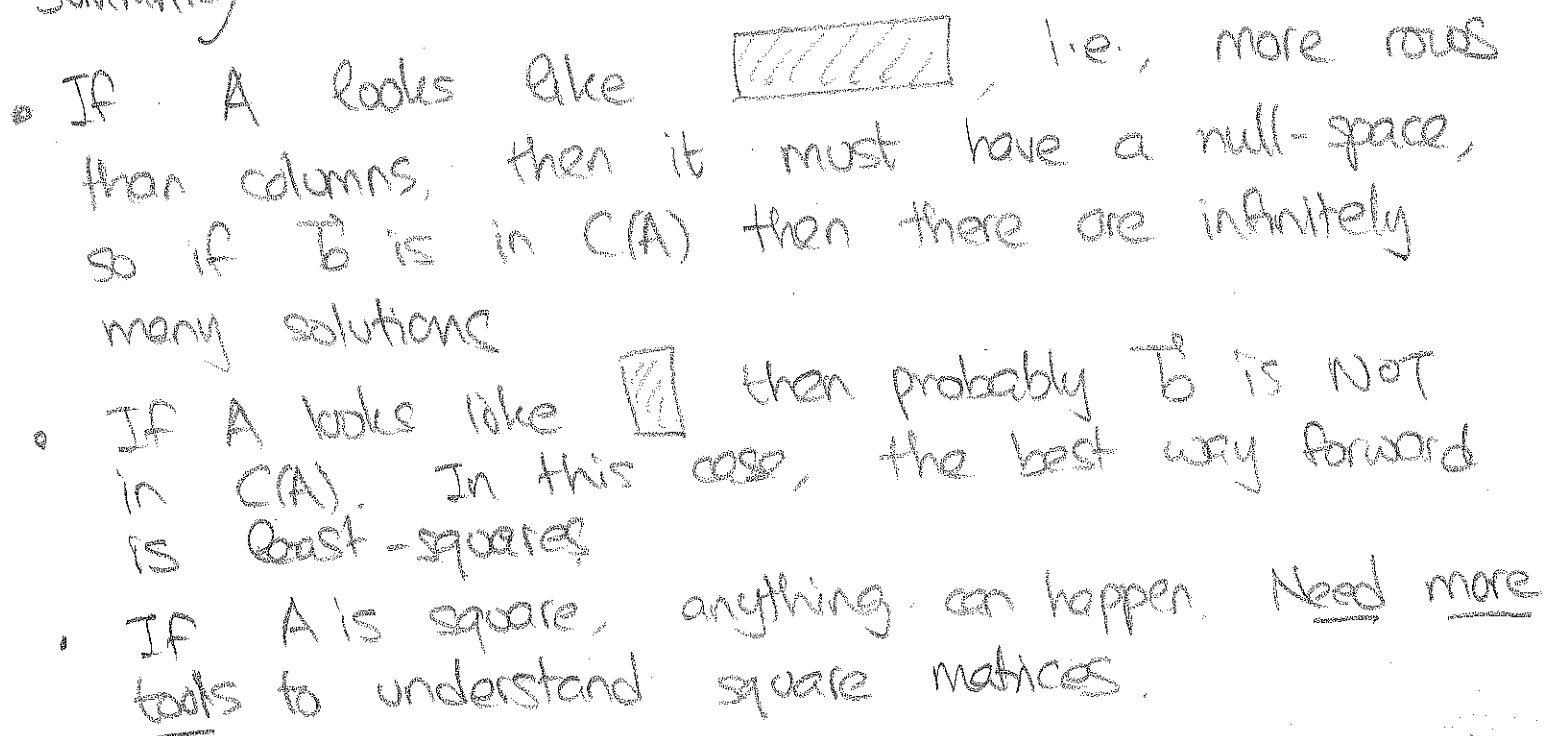 Summary
• If A looks like , i.e., more rows
than columns, then it must have a null-space,
so if b⃗ is in C(A) then there are infinitely
many solutions
• If A looks like then probably b⃗ is NOT
in C(A). In this case, the best way forward
is least-squares
• If A is square, anything can happen. Need more
tools to understand square matrices.